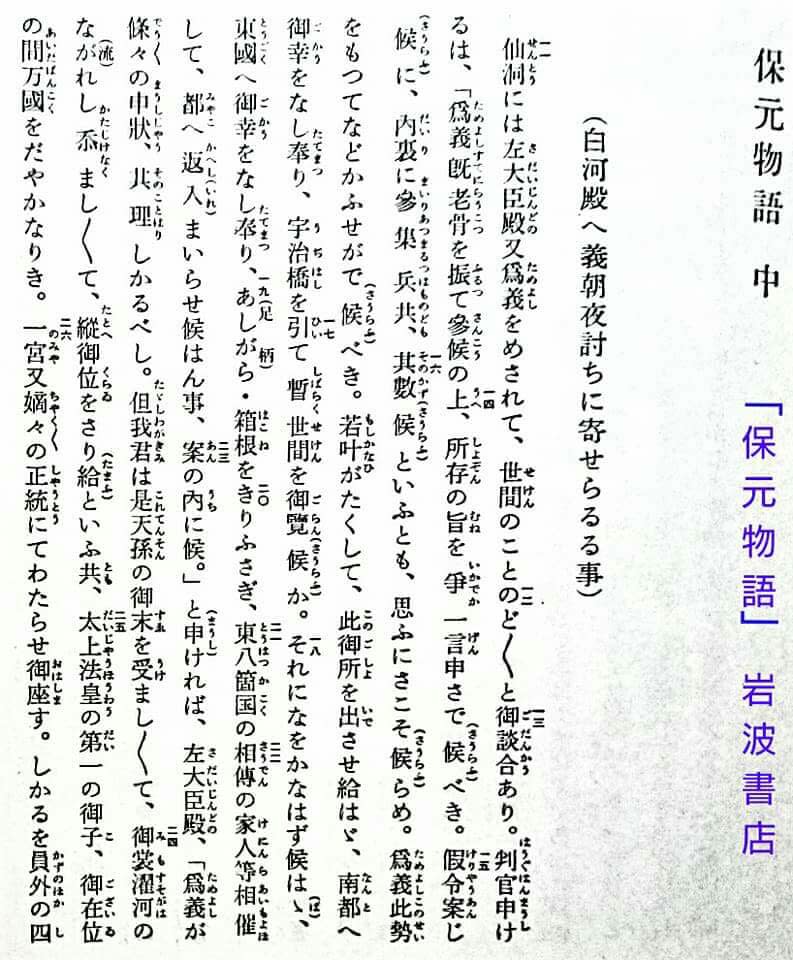 保元物語 中
「保元物語」 岩波書店
(白河殿へ義朝夜討ちに寄せらるる事)
仙洞には左大臣殿又爲義をめされて、世間のことのど〱と御談合あり。判官申け
るは、「爲義既老骨を振て參候の上、所存の旨を爭一言申さで候べき。假令案じ
候に、內裏に參集兵共、其數候といふとも、思ふにさこそ候らめ。爲義此勢
をもつてなどかふせがで候べき。若叶がたくして、此御所を出させ給はゞ、南都へ
御幸をなし奉り、宇治橋を引て暫世間を御覽候か。それになをかなはず候はゝ、
東國へ御幸をなし奉り、あしがら・箱根をきりふさぎ、東八箇国の相傳の家人等相催
して、都へ返入まいらせ候はん事、案の內に候。」と申ければ、左大臣殿、「爲義が
條々の申狀、其理しかるべし。但我君は是天孫の御末を受まし〱て、御裳濯河の
ながれし忝まし〱て、縱御位をさり給といふ共、太上法皇の第一の御子、御在位
の間万國をだやかなりき。一宮又嫡々の正統にてわたらせ御座す。しかるを員外の四